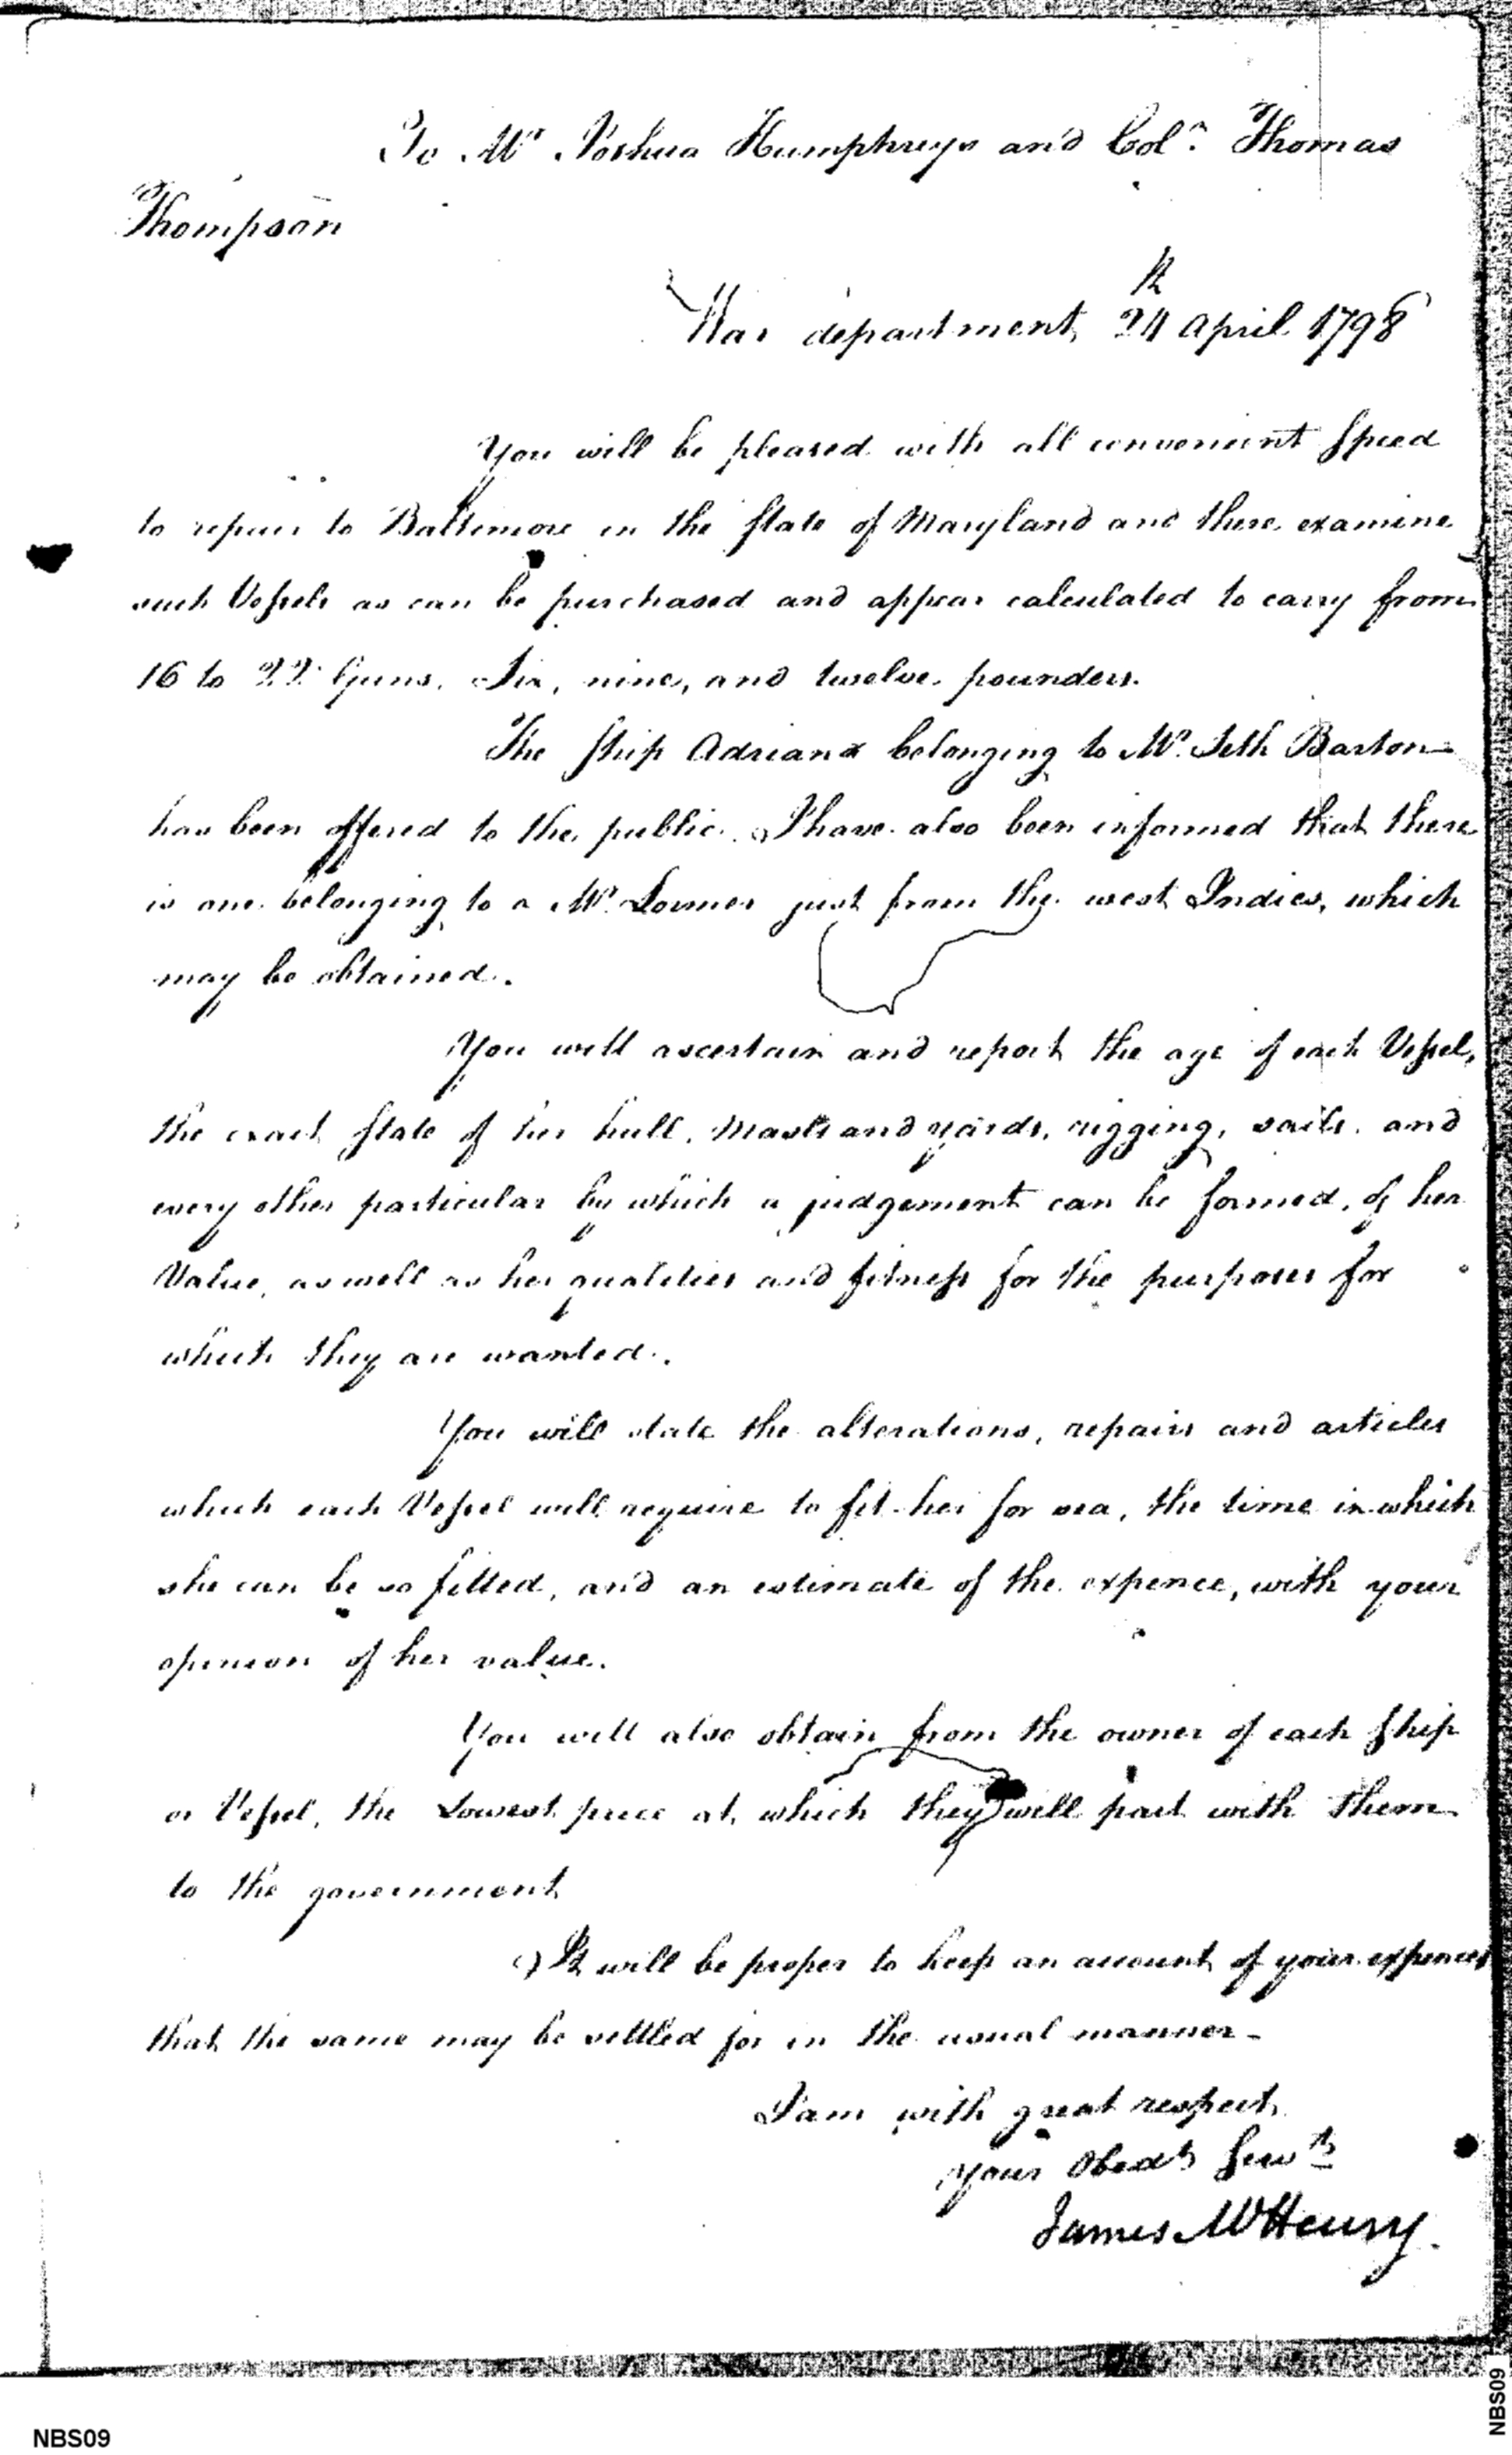 To Mr Joshua Humphreys and Col.n Thomas
Thompson
War department, 24 April 1798
You will be pleased with all convenient speed
to repair to Baltimore in the State of Maryland and there examine
such Vessels as can be purchased and appear calculated to carry from
16 to 22 Guns. Six, nine, and twelve pounders.
The Ship Adriana belonging to Mr. Seth Barton
has been offered to the public. I have also been informed that there
is one belonging to a Mr. just from the west Indies, which
may be obtained.
You will ascertain and report the age of each Vessel,
the exact State of her hull, Masts and yards, rigging, sails, and
every other particular by which a judgement can be formed, of her
Value, as well as her qualities and fitness for the purposes for
which they are wanted.
You will state the alterations, repairs and articles
which each Vessel will require to fit her for sea, the time in which
she can be so fitted, and an estimate of the expence, with your
opinion of her value.
You will also obtain from the owner of each Ship
or Vessel, the Lowest price at which they will part with them
to the government
It will be proper to keep an account of your expences
that the same may be settled for in the usual manner-
I am with great respect
your Obedt Servt
James McHenry.
NBS09
NBS09